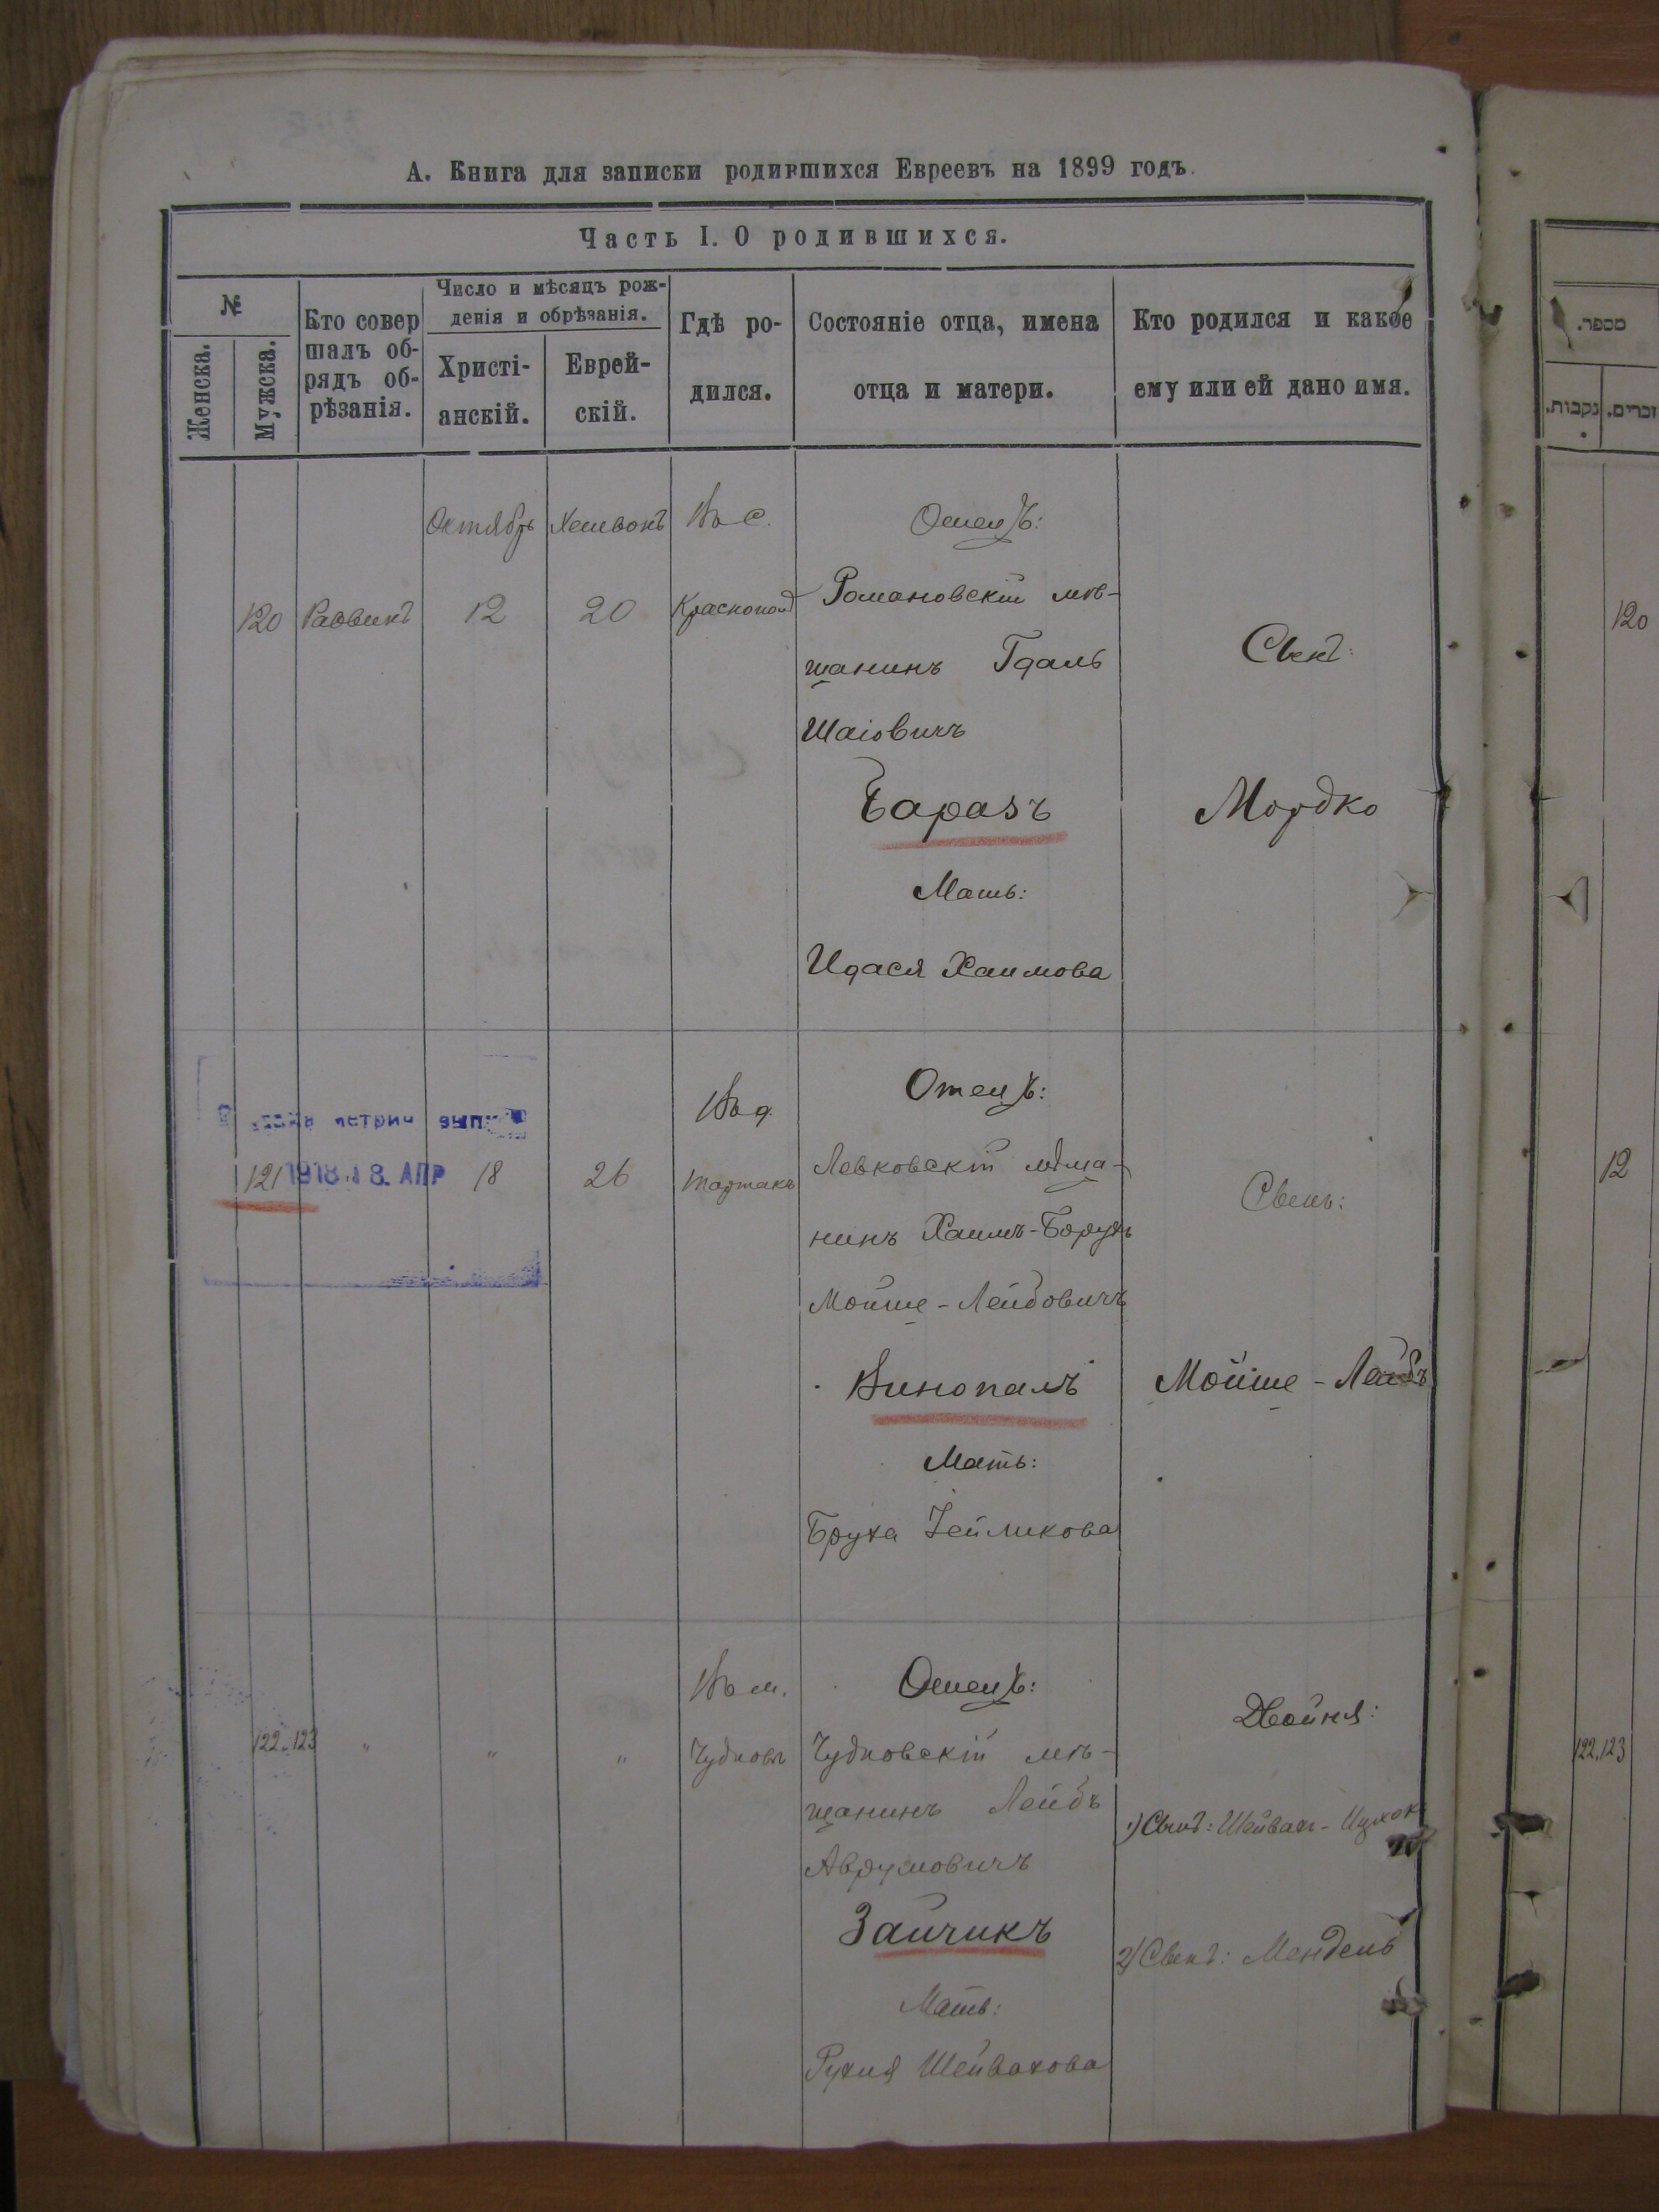 А. Книга для записки родившихся Евреевъ на 1899 годъ.
Часть I. О родившихся.
№
Женска.
Мужска.
Кто совер
шалъ об-
рядъ об-
рѣзанія.
Число и мѣсяцъ рож-
денія и обрѣзанія.
Христі-
анскій.
Еврей-
скій.
Гдѣ ро-
дился.
Состояніе отца, имена
отца и матери.
Кто родился и какое
ему или ей дано имя.
Октябрь
12
20
Въ с.
120
Отецъ:
Романовскій мѣ-
щанинъ Гдаль
Шаіовичъ
Баразъ
Мать:
Идася Хаимова
Сынъ:
Мордко
121
1918 18. АПР
18
26
Въ д.
Тартакъ
Отецъ:
Левковскій мѣща-
нинъ Хаимъ-Борухъ
Мойше-Лейбовичъ
Винопалъ
Мать:
Бруха Зейликова
Сынъ:
Мойше-Лейбъ
122. 123
"
"
"
Въ м.
Чудновъ
Отецъ:
Чудновскій мѣ-
щанинъ Лейбъ
Аврумовичъ
Зайчикъ
Мать:
Рухля Шейвахова
Двойня:
1) Сынъ: Шейвахъ-Ицхокъ
2) Сынъ: Мендель
מספר.
נקבות.
זכרים.
120
12
122,123